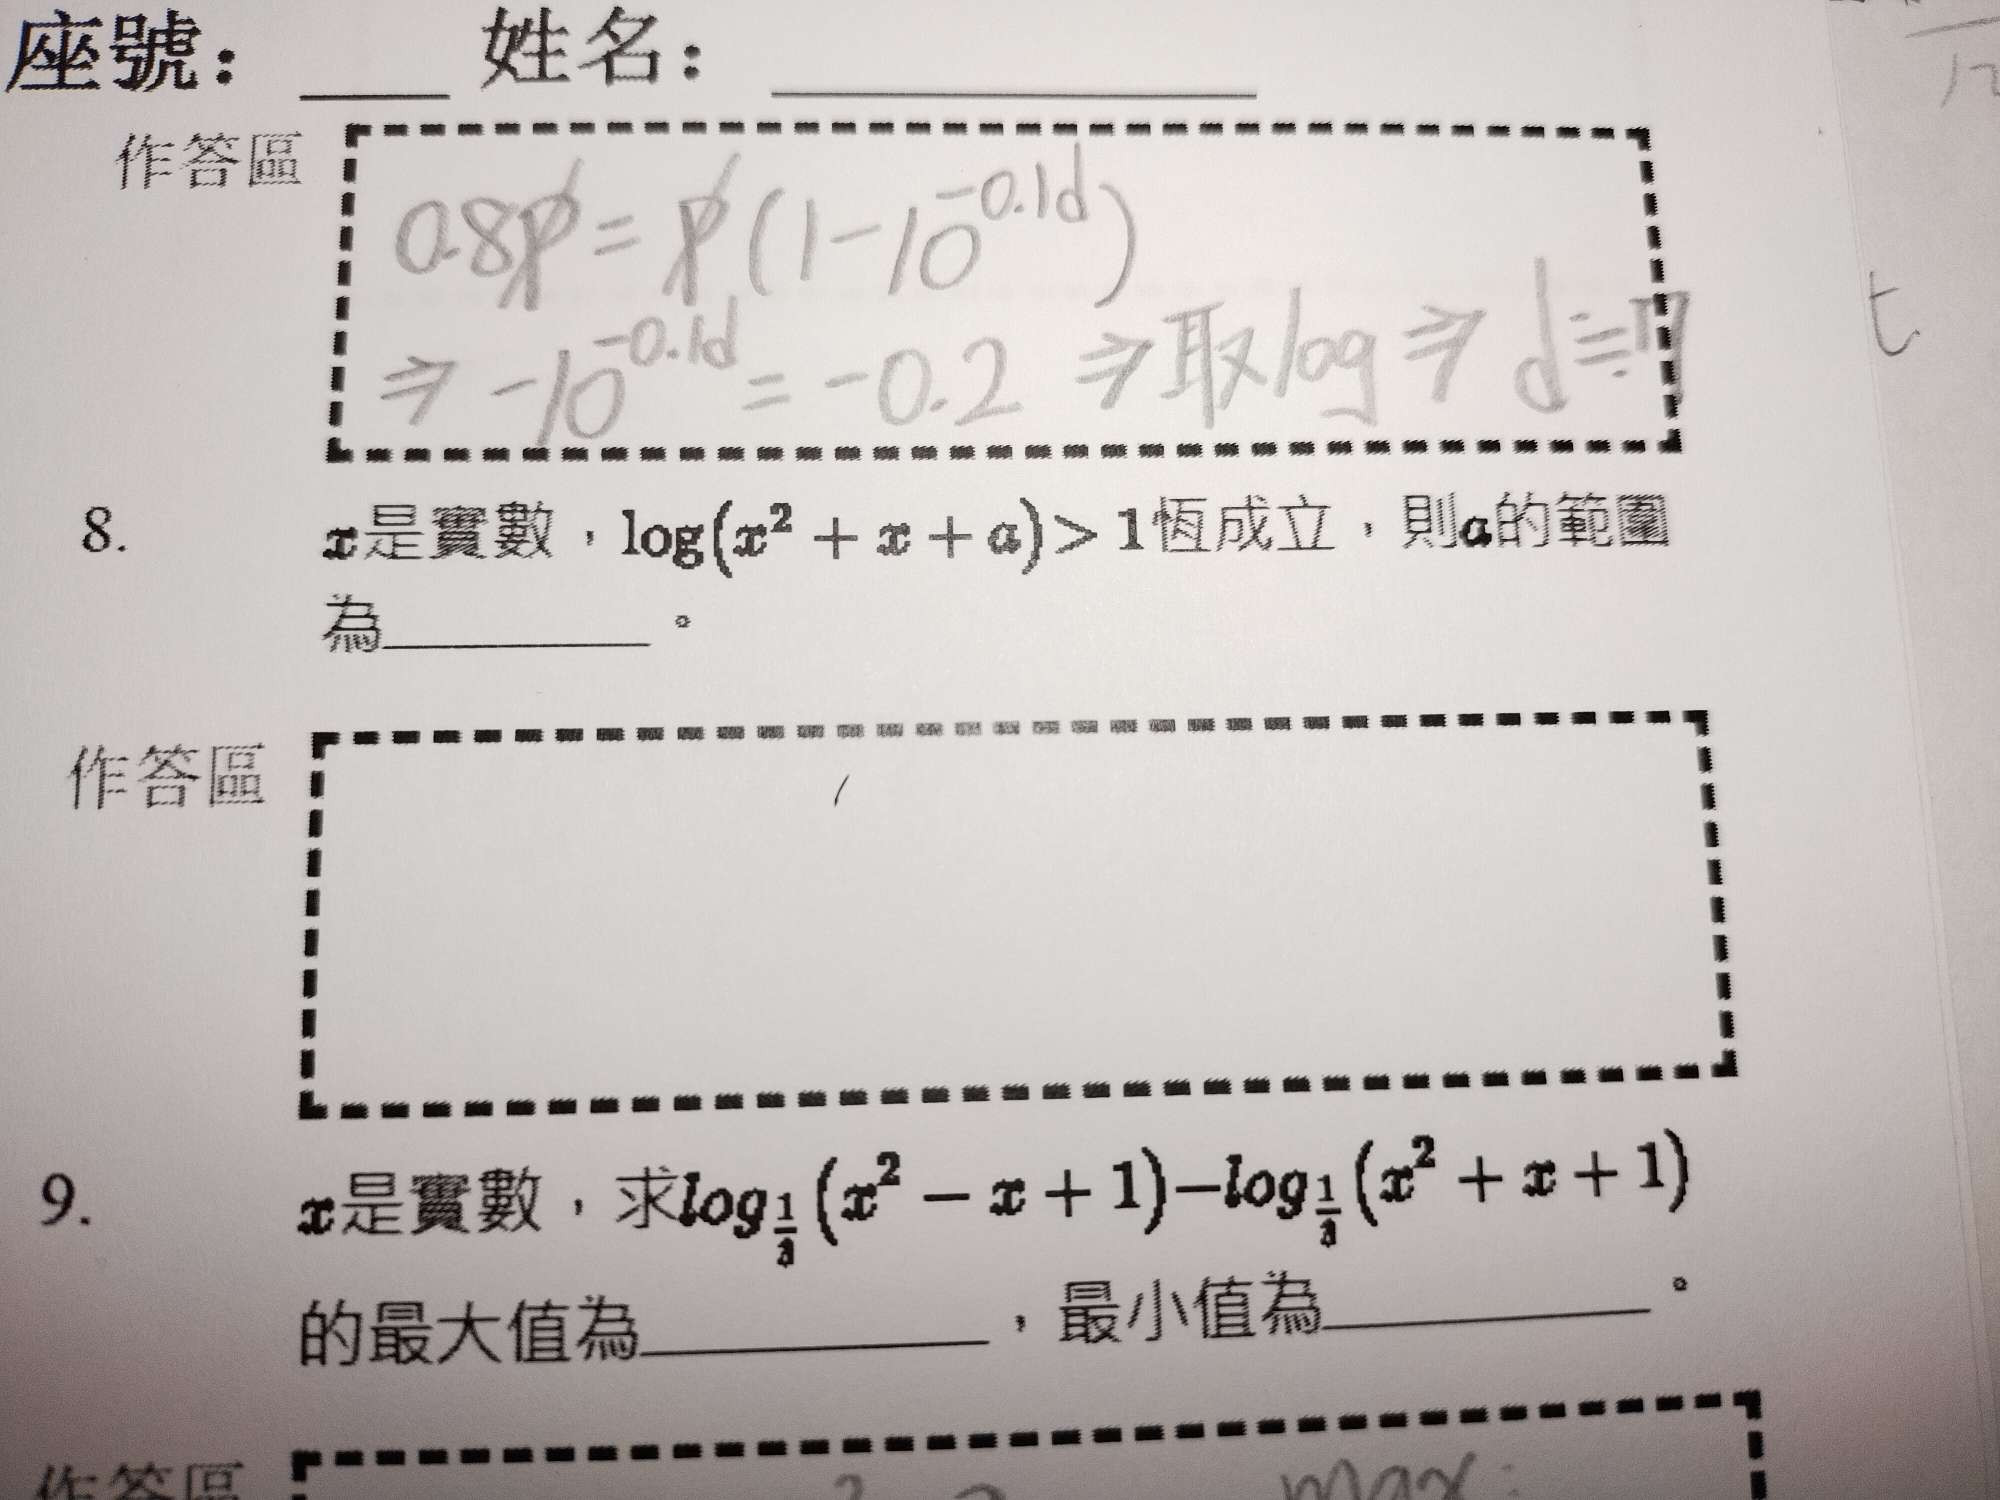 座號：____ 姓名：__________
作答區
0.8p = p(1-10^{-0.1d})
⇒ -10^{-0.1d} = -0.2 ⇒ 取log ⇒ d ≒ 7
t
8. x是實數，log(x²+x+a)>1恆成立，則a的範圍
為________。
作答區
9. x是實數，求log_{1/3}(x²-x+1)-log_{1/3}(x²+x+1)
的最大值為__________，最小值為__________。
作答區
max: